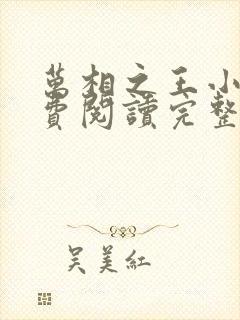 萬相之王小
費閱讀完整
吳美紅